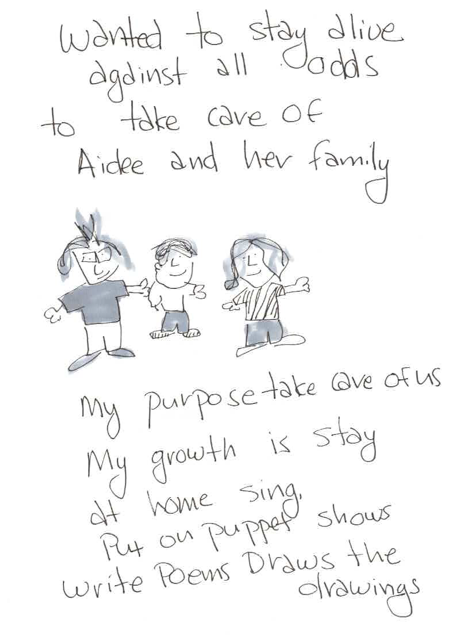 Wanted to stay alive
against all odds
to take care of
Aidee and her family
My purpose take care of us
My growth is stay
at home sing.
Put on puppet shows
Write Poems Draws the
drawings